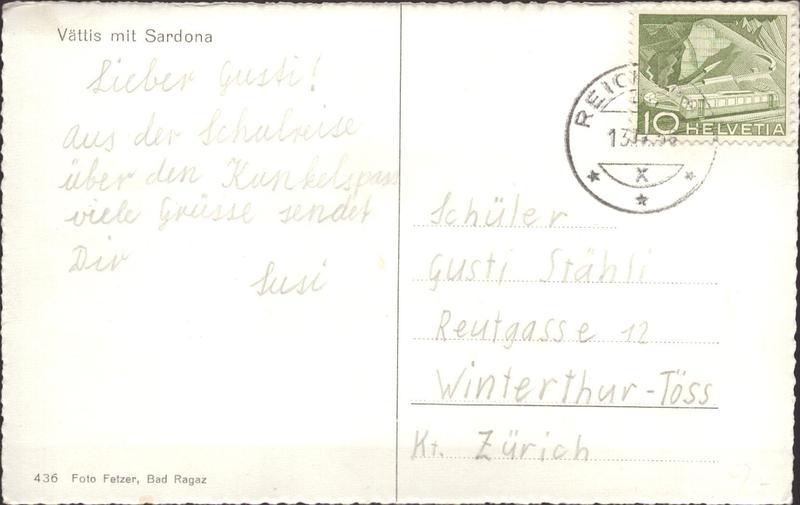 Vättis mit Sardona
Lieber Gusti!
aus der Schulreise
über den Kunkelspass
viele Grüsse sendet
Dir
Susi
10 HELVETIA
REIC
13
X
Schüler
Gusti Stähli
Reutgasse 12
Winterthur-Töss
Kt. Zürich
436 Foto Fetzer, Bad Ragaz